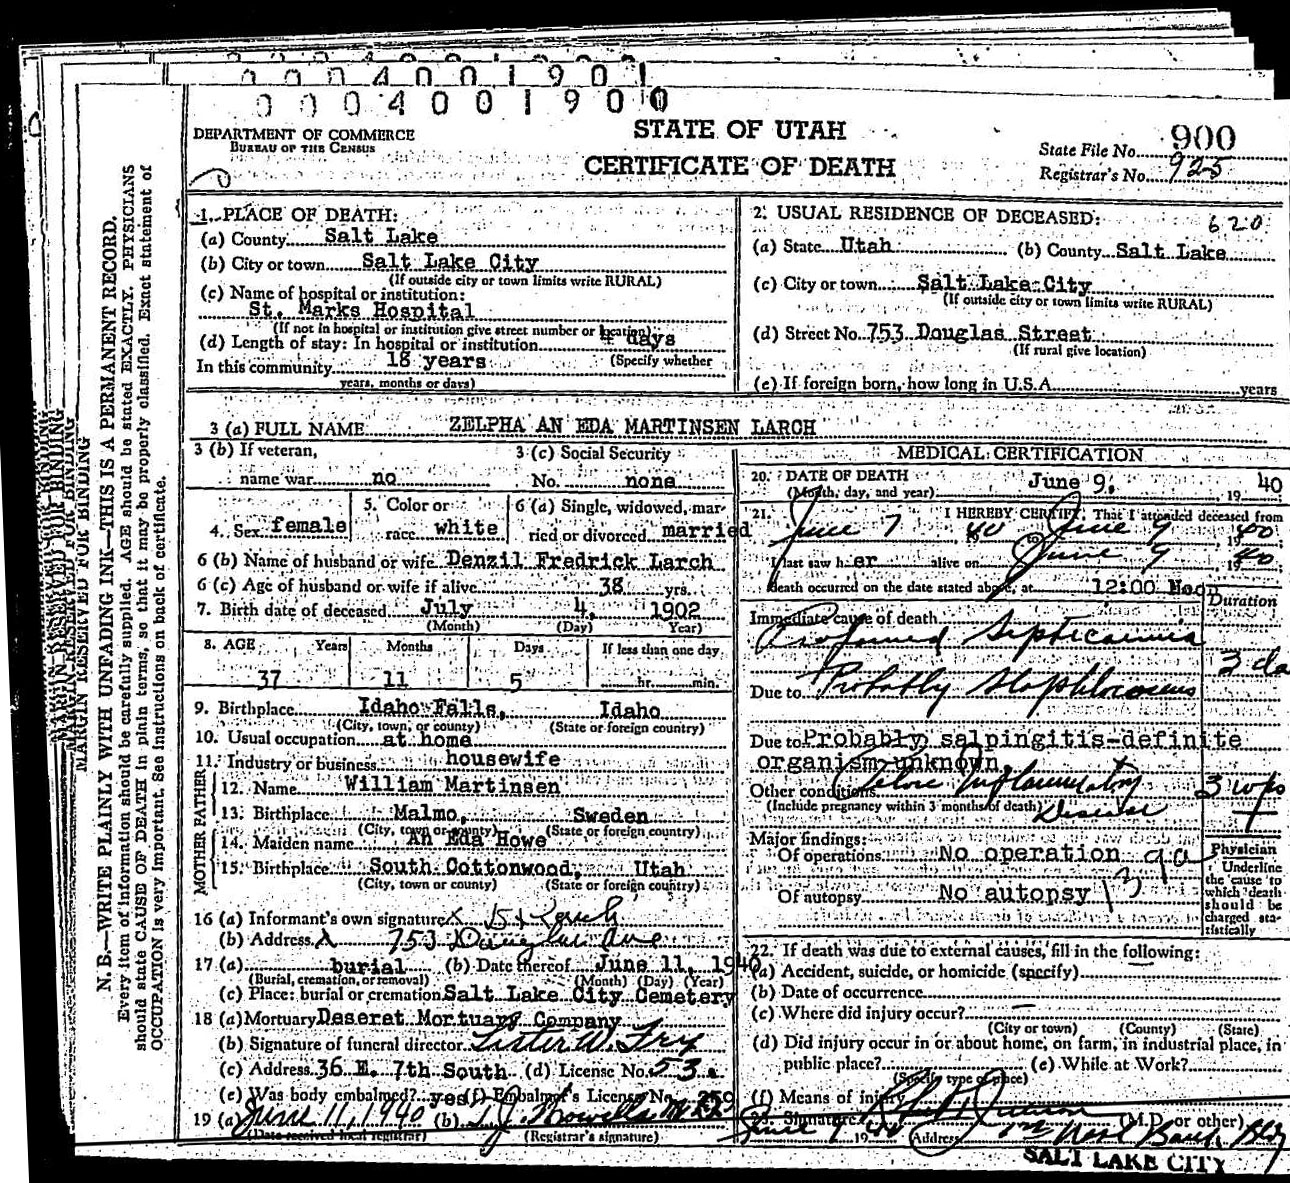 0004001901
0004001900
DEPARTMENT OF COMMERCE
BUREAU OF THE CENSUS
STATE OF UTAH
CERTIFICATE OF DEATH
State File No. 900
Registrar's No. 925
MARGIN RESERVED FOR BINDING
N. B.—WRITE PLAINLY WITH UNFADING INK—THIS IS A PERMANENT RECORD.
Every item of information should be carefully supplied. AGE should be stated EXACTLY. PHYSICIANS
should state CAUSE OF DEATH in plain terms, so that it may be properly classified. Exact statement of
OCCUPATION is very important. See instructions on back of certificate.
1. PLACE OF DEATH:
(a) County Salt Lake
(b) City or town Salt Lake City
(If outside city or town limits write RURAL)
(c) Name of hospital or institution:
St. Marks Hospital
(If not in hospital or institution give street number or location)
(d) Length of stay: In hospital or institution 4 days
(Specify whether
In this community 18 years
years, months or days)
2. USUAL RESIDENCE OF DECEASED: 620
(a) State Utah (b) County Salt Lake
(c) City or town Salt Lake City
(If outside city or town limits write RURAL)
(d) Street No. 753 Douglas Street
(If rural give location)
(e) If foreign born, how long in U.S.A. years
3 (a) FULL NAME ZELPHA AN EDA MARTINSEN LARCH
3 (b) If veteran,
name war no
3 (c) Social Security
No. none
4. Sex female
5. Color or
race white
6 (a) Single, widowed, mar-
ried or divorced married
6 (b) Name of husband or wife Denzil Fredrick Larch
6 (c) Age of husband or wife if alive 38 yrs.
7. Birth date of deceased July 4, 1902
(Month) (Day) (Year)
8. AGE Years Months Days If less than one day
37 11 5 hr. min.
9. Birthplace Idaho Falls, Idaho
(City, town, or county) (State or foreign country)
10. Usual occupation at home
11. Industry or business housewife
FATHER
12. Name William Martinsen
13. Birthplace Malmo, Sweden
(City, town or county) (State or foreign country)
MOTHER
14. Maiden name An Eda Howe
15. Birthplace South Cottonwood, Utah
(City, town or county) (State or foreign country)
16 (a) Informant's own signature
(b) Address 753 Douglas Ave
17 (a) burial (b) Date thereof June 11, 1940
(Burial, cremation, or removal) (Month) (Day) (Year)
(c) Place: burial or cremation Salt Lake City Cemetery
18 (a) Mortuary Deseret Mortuary Company
(b) Signature of funeral director
(c) Address 36 E. 7th South (d) License No. 53
(e) Was body embalmed? yes (f) Embalmer's License No. 259
19 (a) June 11, 1940 (b)
(Date received local registrar) (Registrar's signature)
MEDICAL CERTIFICATION
20. DATE OF DEATH
(Month, day, and year) June 9, 1940
21. I HEREBY CERTIFY, That I attended deceased from
June 7 1940 to June 9 1940
I last saw h er alive on June 9 1940
Death occurred on the date stated above, at 12:00 Noon
Duration
Immediate cause of death
Profound Septicaemia
3 da
Due to Probably Staphlococcus
Due to Probably salpingitis-definite
organism unknown
Other conditions Pelvic Inflammatory
(Include pregnancy within 3 months of death) Disease
Major findings:
Of operations No operation
Of autopsy No autopsy
Physician
Underline
the cause to
which death
should be
charged sta-
tistically
22. If death was due to external causes, fill in the following:
(a) Accident, suicide, or homicide (specify)
(b) Date of occurrence
(c) Where did injury occur?
(City or town) (County) (State)
(d) Did injury occur in or about home, on farm, in industrial place, in
public place? (e) While at Work?
(Specify type of place)
(f) Means of injury
23. Signature (M.D. or other)
June 9 1940 Address
SALT LAKE CITY